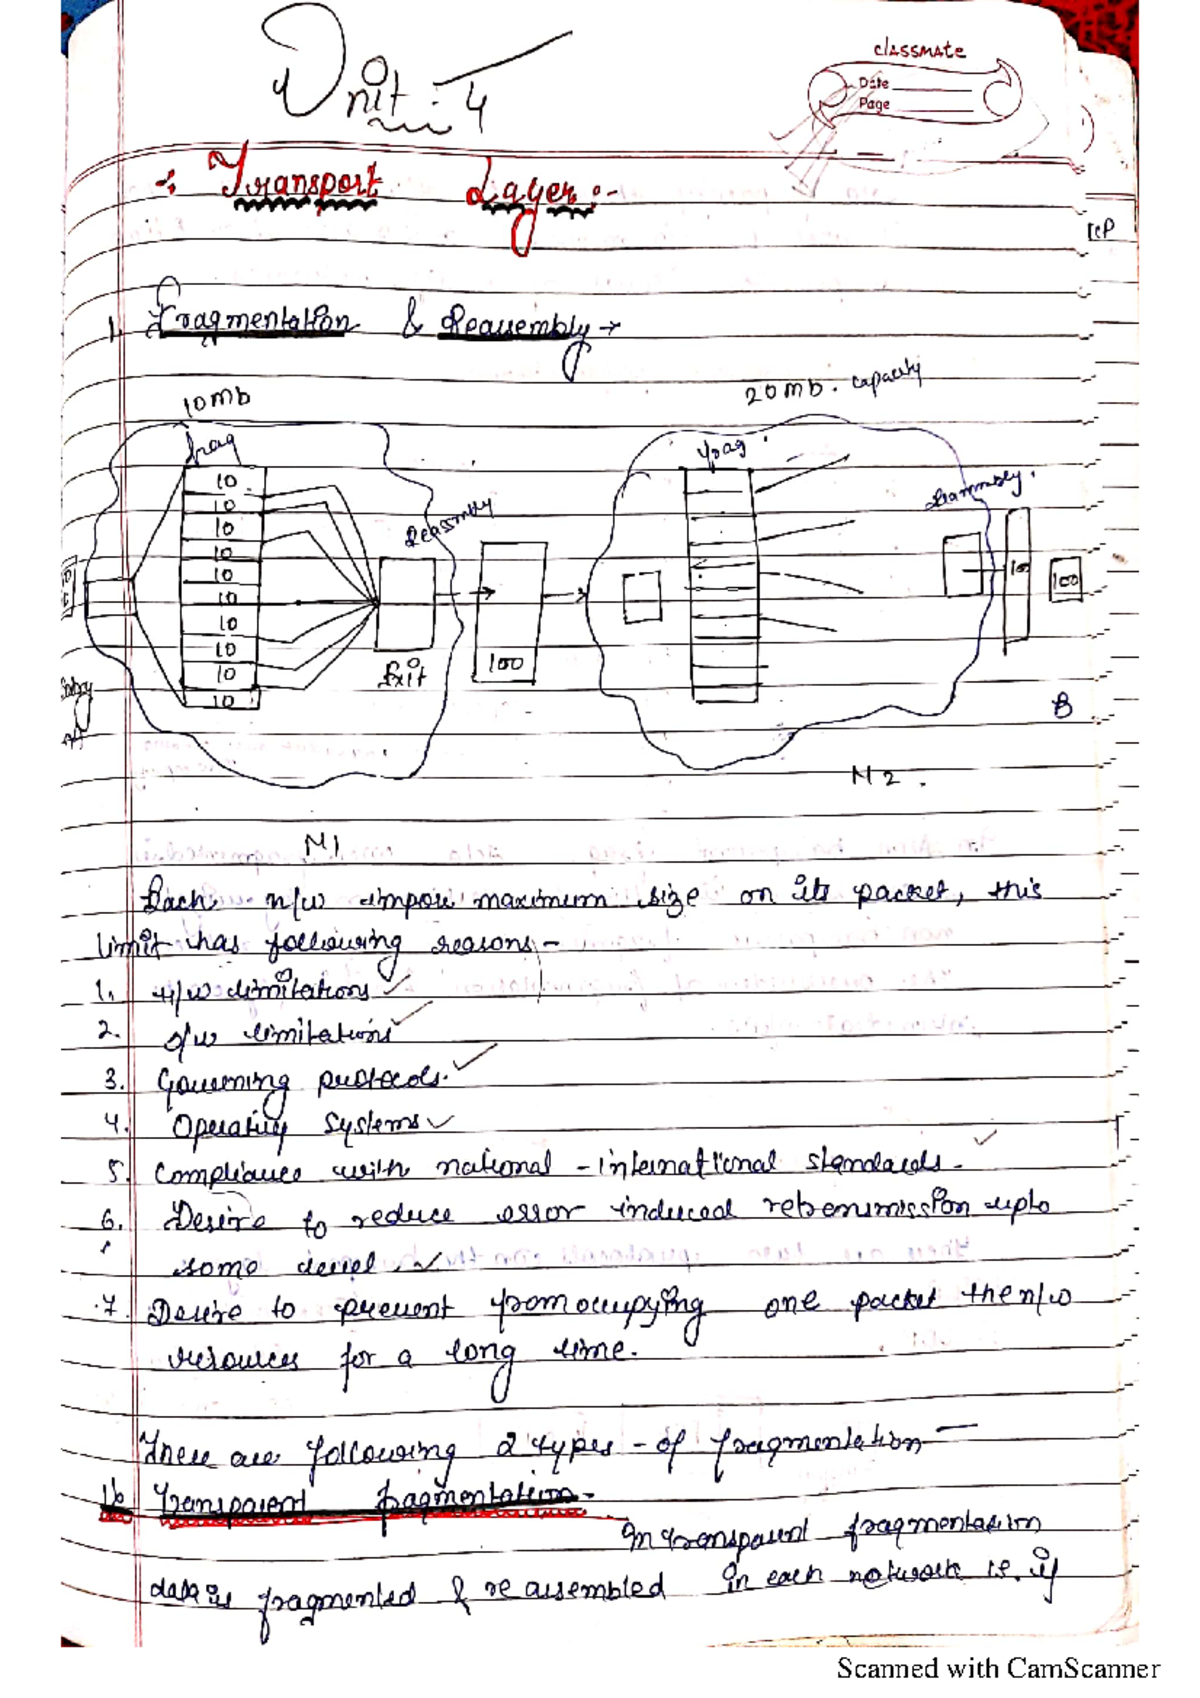 Unit : 4
classmate
Date
Page
-: Transport Layer :-
TCP
1. Fragmentation & Reassembly →
10 mb
20 mb . capacity
frag
frag .
Reassmbly
10
10
10
10
10
10
10
10
10
10
Exit
100
100
100
Entry
A
B
N1
N2 .
Each n/w impose maximum size on its packet, this
limit has following reasons -
1. H/w limitations ✓
2. s/w limitations ✓
3. Governing protocols. ✓
4. Operating Systems ✓
5. Compliance with national - international standards. ✓
6. Desire to reduce error induced retransmission upto
some level ✓
7. Desire to prevent from occupying one packet the n/w
resources for a long time.
There are following 2 types - of fragmentation -
Transparent fragmentation -
In transparent fragmentation
data is fragmented & re assembled in each network i.e. if
Scanned with CamScanner